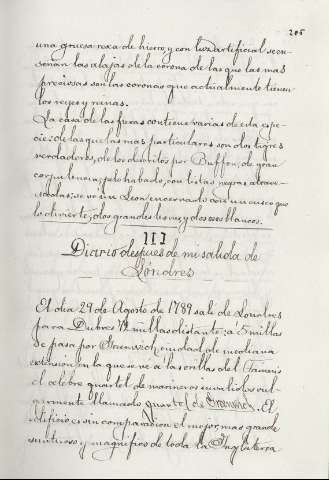 205
una gruesa rexa de hierro, y con luz artificial se en-
señan las alajas de la corona de las que las mas
preciosas son las coronas que actualmente tienen
los reyes y reinas.
La casa de las fieras contiene varias de esta espe-
cie: de las que las mas particulares son dos tigres
verdaderos, de los descritos por Buffon, de gran
corpulencia, pelo habado, con listas negras atrave-
sadas: se ve un Leon encerrado con un que
lo divierte, dos grandes y dos osos blancos.
III
Diario despues de mi salida de
Londres
El dia 29 de Agosto de 1789 sali de Londres
para Dubres 72 millas distante: a 5 millas
se pasa por ciudad de mediana
extension, en la que se ve a las orillas del Tamesis
el celebre quartel de marineros invalidos vul-
garmente llamado quartel de Greenwich. El
edificio es sin comparacion el mejor, mas grande
suntuoso y magnifico de toda la Inglaterra